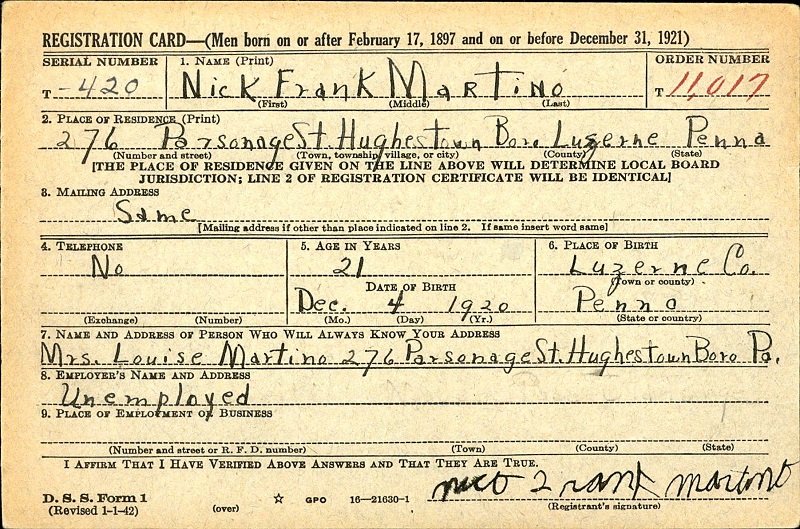 REGISTRATION CARD—(Men born on or after February 17, 1897 and on or before December 31, 1921)
SERIAL NUMBER 1. NAME (Print) ORDER NUMBER
T -420 Nick Frank Martino T 11,017
(First) (Middle) (Last)
2. PLACE OF RESIDENCE (Print)
276 Parsonage St. Hughestown Boro. Luzerne Penna
(Number and street) (Town, township, village, or city) (County) (State)
[THE PLACE OF RESIDENCE GIVEN ON THE LINE ABOVE WILL DETERMINE LOCAL BOARD
JURISDICTION; LINE 2 OF REGISTRATION CERTIFICATE WILL BE IDENTICAL]
3. MAILING ADDRESS
Same
[Mailing address if other than place indicated on line 2. If same insert word same]
4. TELEPHONE 5. AGE IN YEARS 6. PLACE OF BIRTH
No 21 Luzerne Co.
DATE OF BIRTH (Town or county)
Dec. 4 1920 Penna
(Exchange) (Number) (Mo.) (Day) (Yr.) (State or country)
7. NAME AND ADDRESS OF PERSON WHO WILL ALWAYS KNOW YOUR ADDRESS
Mrs. Louise Martino 276 Parsonage St. Hughestown Boro Pa.
8. EMPLOYER'S NAME AND ADDRESS
Unemployed
9. PLACE OF EMPLOYMENT OR BUSINESS
(Number and street or R. F. D. number) (Town) (County) (State)
I AFFIRM THAT I HAVE VERIFIED ABOVE ANSWERS AND THAT THEY ARE TRUE.
Frank Martino
D. S. S. Form 1
(Revised 1-1-42) (over) ☆ GPO 16—21630-1 (Registrant's signature)